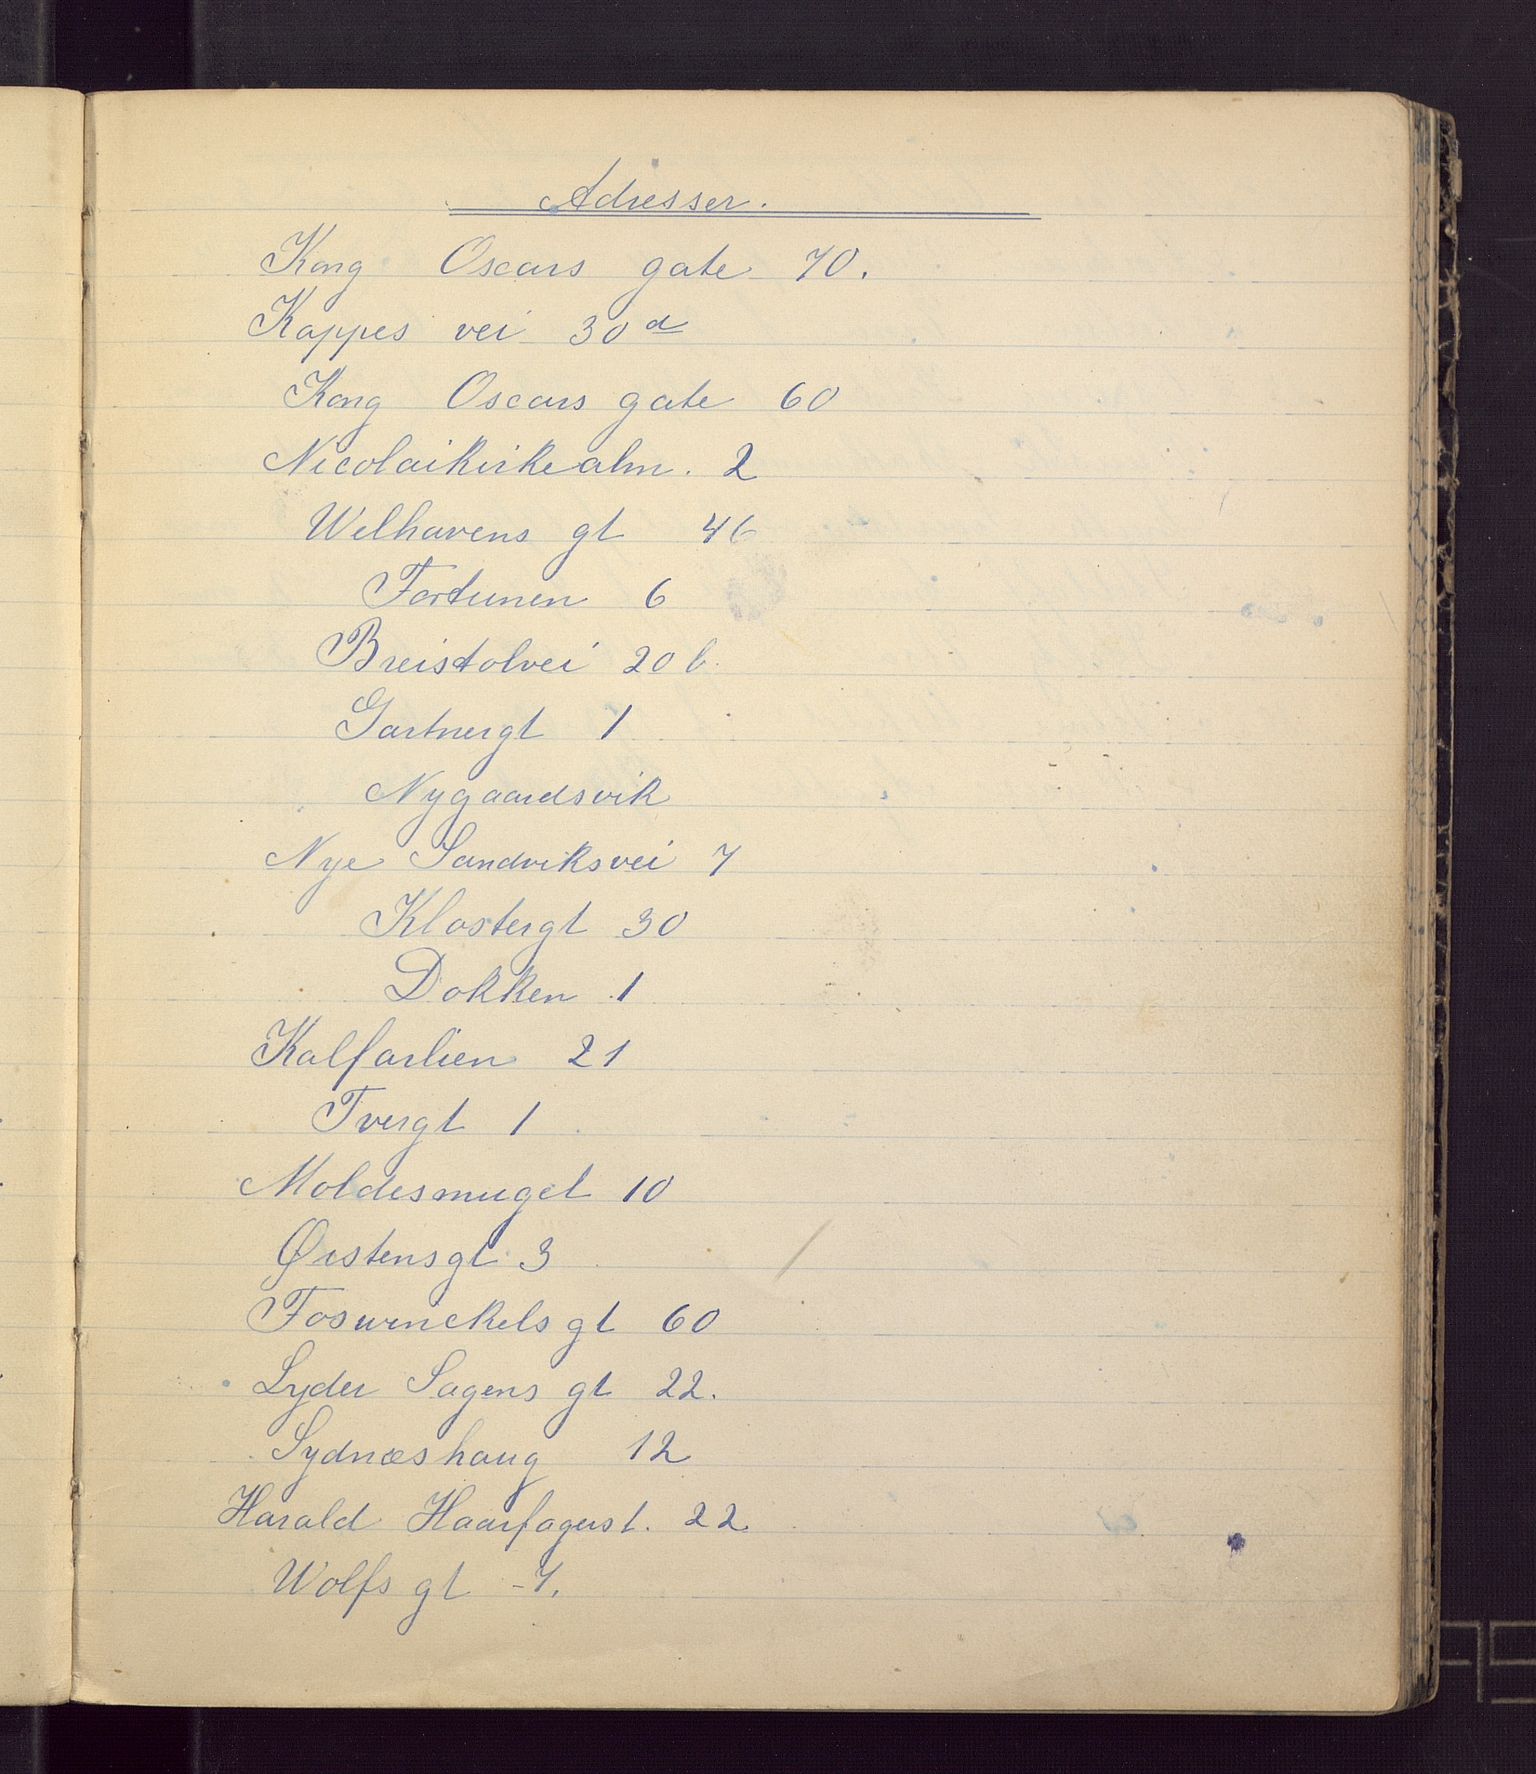 Adresser.
Kong Oscars gate 70.
Kappes vei 30 d
Kong Oscars gate 60
Nicolaikirkealm. 2
Welhavens gt 46
Fortunen 6
Breistolvei 20 b.
Gartnergt 1
Nygaardsvik
Nye Sandviksvei 7
Klostergt 30
Dokken 1
Kalfarlien 21
Tvergt 1
Moldesmuget 10
Øistensgt 3
Foswinckels gt 60
Lyder Sagens gt 22.
Sydnæshaug 12
Harald Haarfagerst. 22
Wolfs gt -7.